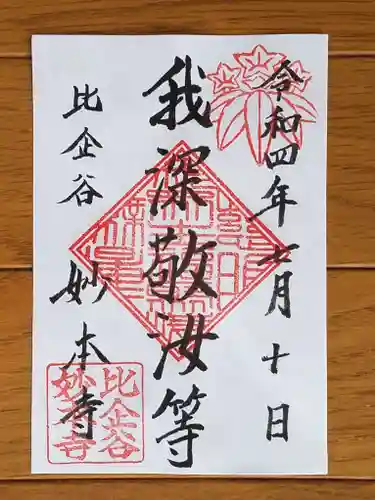 令和四年七月十日
我深敬汝等
比企谷
妙本寺
比企谷
妙本寺